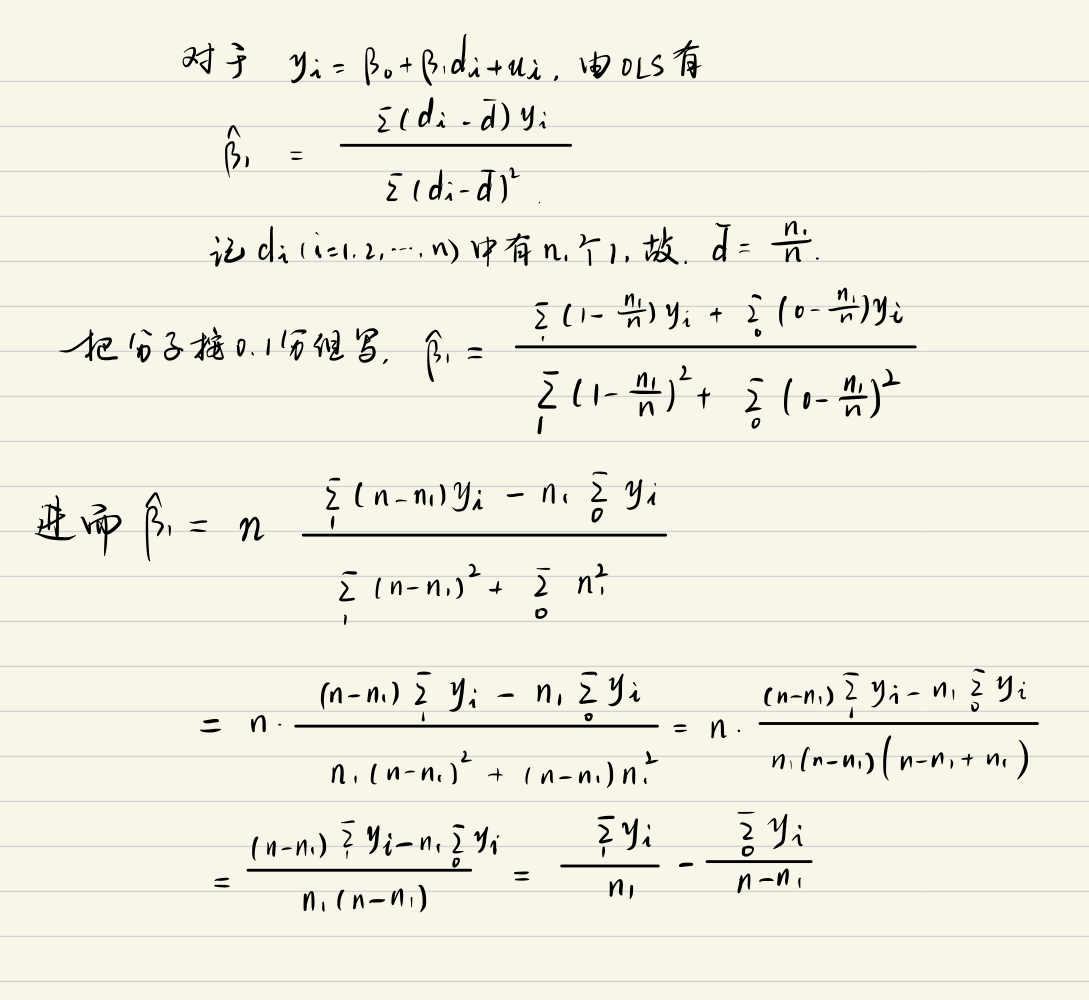 对于 yᵢ = β₀ + β₁dᵢ + uᵢ, 由OLS有
β̂₁ = Σ(dᵢ - d̄)yᵢ / Σ(dᵢ - d̄)²
记 dᵢ (i=1,2,⋯,n) 中有 n₁ 个1, 故. d̄ = n₁/n.
把分子按0.1分组写, β̂₁ = [Σ₁(1 - n₁/n)yᵢ + Σ₀(0 - n₁/n)yᵢ] / [Σ₁(1 - n₁/n)² + Σ₀(0 - n₁/n)²]
进而 β̂₁ = n [Σ₁(n-n₁)yᵢ - n₁Σ₀yᵢ] / [Σ₁(n-n₁)² + Σ₀n₁²]
= n · [(n-n₁)Σ₁yᵢ - n₁Σ₀yᵢ] / [n₁(n-n₁)² + (n-n₁)n₁²] = n · [(n-n₁)Σ₁yᵢ - n₁Σ₀yᵢ] / [n₁(n-n₁)(n-n₁+n₁)]
= [(n-n₁)Σ₁yᵢ - n₁Σ₀yᵢ] / [n₁(n-n₁)] = Σ₁yᵢ / n₁ - Σ₀yᵢ / (n-n₁)